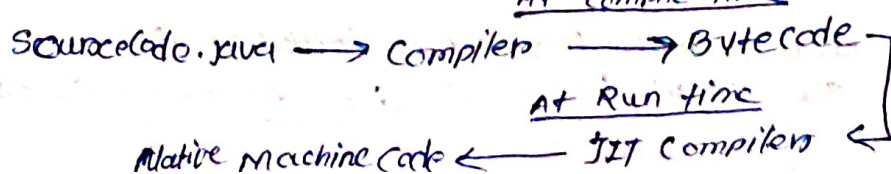 At Compile time
SourceCode.java → Compiler → Bytecode
At Run time
Native Machine Code ← JIT Compiler